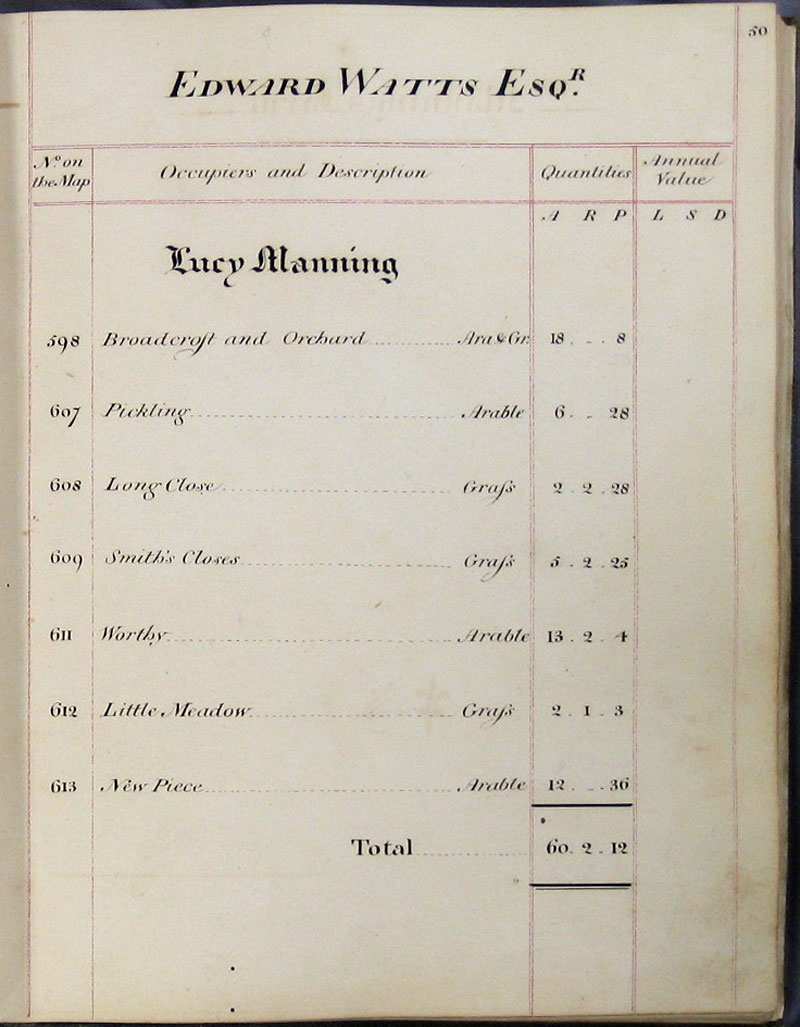 50
EDWARD WATTS ESQ.R
No. on the Map Occupiers and Description Quantities Annual Value
A R P L S D
Lucy Manning
598 Broadcroft and Orchard Ara & Gr. 18 . - . 8
607 Pickling Arable 6 . - 28
608 Long Close Graſs 2 . 2 . 28
609 Smith's Closes Graſs 5 . 2 . 25
611 Worthy Arable 13 . 2 . 4
612 Little Meadow Graſs 2 . 1 . 3
613 New Piece Arable 12 . - . 36
Total 60 . 2 . 12